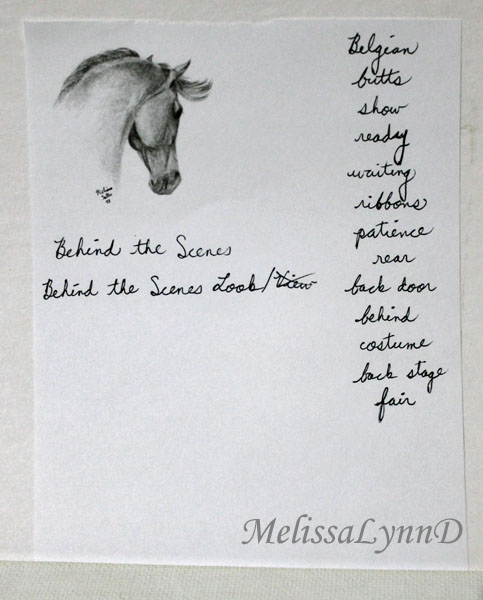 Belgian
butts
show
ready
waiting
ribbons
patience
rear
back door
behind
costume
back stage
fair
Behind the Scenes
Behind the Scenes Look/View
MelissaLynnD